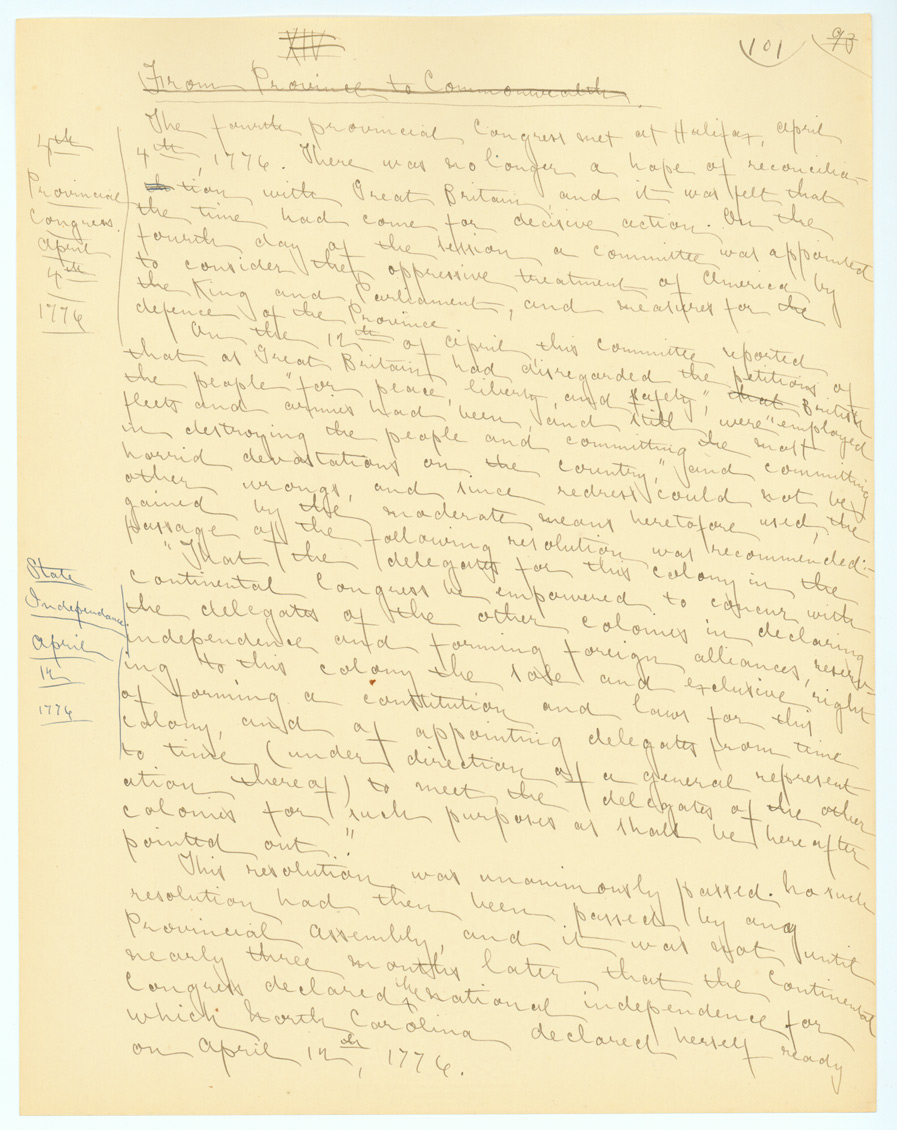 XIV
101
93
From Province to Commonwealth.
4th
Provincial
Congress.
April
4th
1776
The fourth provincial Congress met at Halifax, April
4th, 1776. There was no longer a hope of reconcilia-
tion with Great Britain, and it was felt that
the time had come for decisive action. On the
fourth day of the session a committee was appointed
to consider the oppressive treatment of America by
the King and Parliament, and measures for the
defence of the Province.
On the 12th of April this committee reported
that as Great Britain had disregarded the petitions of
the people "for peace, liberty, and safety", that British
fleets and armies had been, and still were "employed
in destroying the people and committing the most
horrid devastations on the country," and committing
other wrongs, and since redress could not be
gained by the moderate means heretofore used, the
passage of the following resolution was recommended:-
"That the delegates for this colony in the
Continental Congress be empowered to concur with
the delegates of the other colonies in declaring
independence and forming foreign alliances, reserv-
ing to this colony the sole and exclusive right
of forming a constitution and laws for this
colony, and of appointing delegates from time
to time (under direction of a general represent
ation thereof) to meet the delegates of the other
colonies for such purposes as shall be hereafter
pointed out."
State
Independance.
April
12
1776
This resolution was unanimously passed. No such
resolution had then been passed by any
Provincial Assembly, and it was not until
nearly three months later that the Continental
Congress declared the national independence for
which North Carolina declared herself ready
on April 12th, 1776.